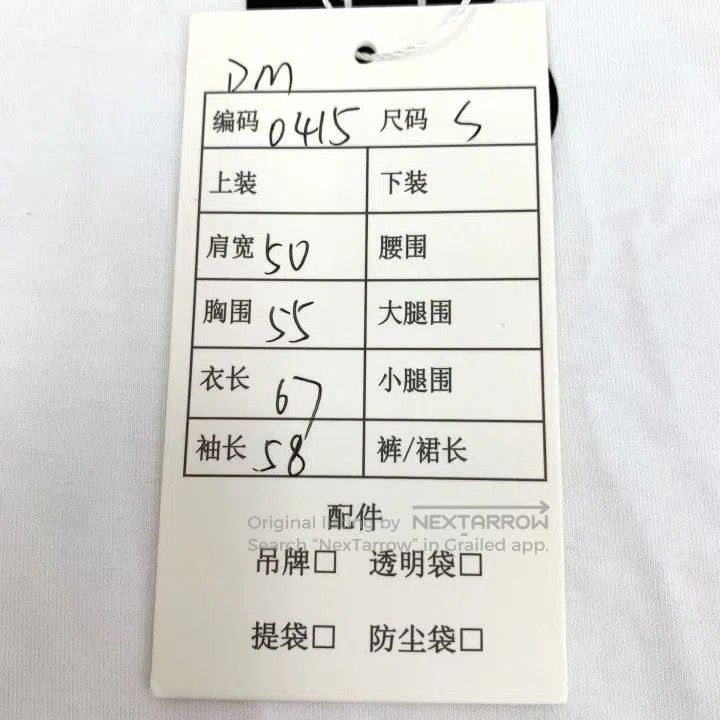 DM
编码 0415 尺码 S
上装 下装
肩宽 50 腰围
胸围 55 大腿围
衣长 67 小腿围
袖长 58 裤/裙长
配件
Original listing by NEXTARROW
Search “NexTarrow” in Grailed app.
吊牌□ 透明袋□
提袋□ 防尘袋□